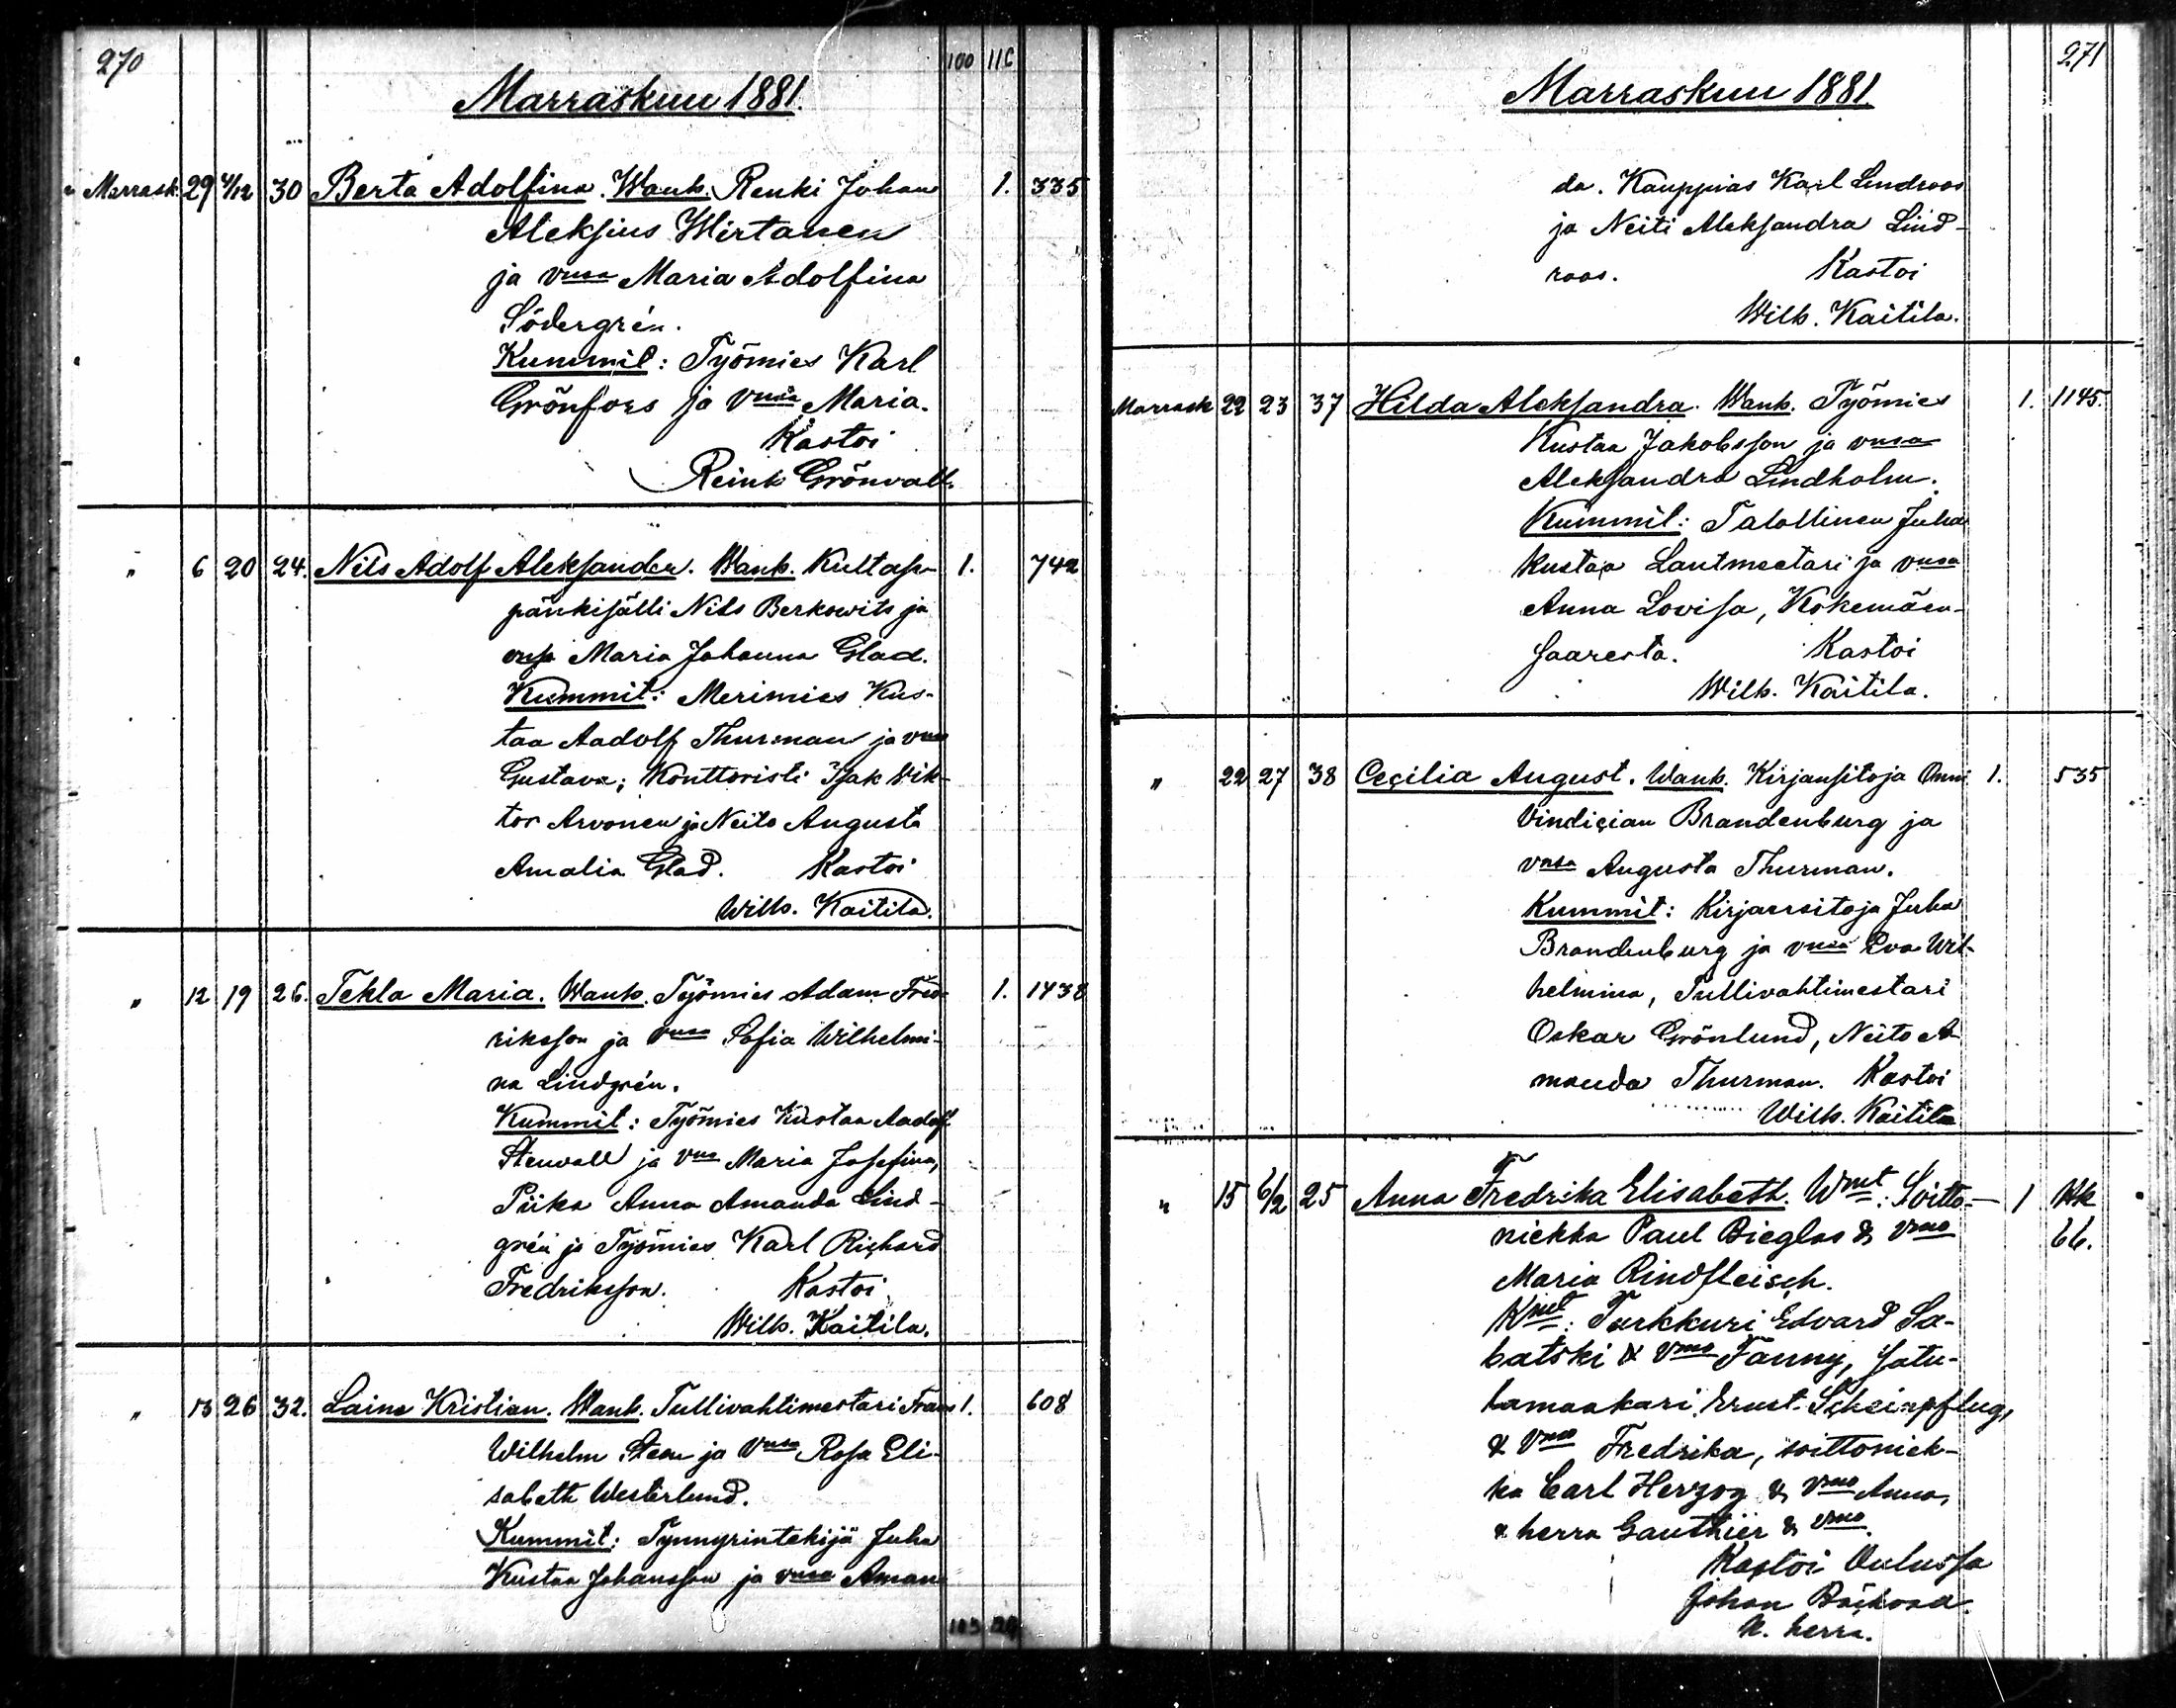 270
100 116
Marraskuu 1881.
Marrask. 29 4/12 30 Berta Adolfina. Wanh. Renki Johan 1. 335
Aleksius Wirtanen
ja vmsa Maria Adolfina
Södergrén.
Kummit: Työmies Karl
Grönfors ja vmsa Maria.
Kastoi
Reinh Grönvall.
" 6 20 24. Nils Adolf Aleksander. Wanh. Kultase- 1. 742
pänkisälli Nils Berkowits ja
vmsa Maria Johanna Glad.
Kummit: Merimies Kus-
taa Aadolf Thurman ja vmsa
Gustava; Konttoristi Isak Wik-
tor Arvonen ja Neito Augusta
Amalia Glad. Kastoi
Wilh. Kaitila.
" 12 19 26. Tekla Maria. Wanh. Työmies Adam Fred- 1. 1438
riksson ja vmsa Sofia Wilhelmi-
na Lindgrén.
Kummit: Työmies Kustaa Aadolf
Stenvall ja vmsa Maria Josefina,
Piika Anna Amanda Lind-
grén ja Työmies Karl Richard
Fredriksson. Kastoi
Wilh. Kaitila.
" 13 26 32. Laina Kristian. Wanh. Tullivahtimestari Frans 1. 608
Wilhelm Steen ja vmsa Rosa Eli-
sabeth Westerlund.
Kummit: Tynnyrintekijä Juha
Kustaa Johansson ja vmsa Aman-
271
Marraskuu 1881
da. Kauppias Karl Lindroos
ja Neiti Aleksandra Lind-
roos. Kastoi
Wilh. Kaitila.
Marrask 22 23 37 Hilda Aleksandra. Wanh. Työmies 1. 1145.
Kustaa Jakobsson ja vmsa
Aleksandra Lindholm.
Kummit: Talollinen Juha
Kustaa Lantmeetari ja vmsa
Anna Lovisa, Kokemäen-
saaresta. Kastoi
Wilh. Kaitila.
" 22 27 38 Cecilia August. Wanh. Kirjansitoja Onni 1. 535
Vindician Brandenburg ja
vmsa Augusta Thurman.
Kummit: Kirjansitoja Juha
Brandenburg ja vmsa Eva Wil-
helmina, Tullivahtimestari
Oskar Grönlund, Neito A-
manda Thurman. Kastoi
Wilh. Kaitila
" 15 6/2 25 Anna Fredrika Elisabeth. Wmt: Soitto- 1 Kk
niekka Paul Bieglas & vmo 66.
Maria Rindfleisch.
Kmt: Turkkuri Edvard Sa-
batski & vmo Fanny, satu-
lamaakari Ernst Scheinpflug,
& vmo Fredrika, soittoniek-
ka Carl Herzog & vmo Anna,
& herra Gauthier & vmo.
Kastoi Oulussa
Johan Bäckvall.
K. herra.